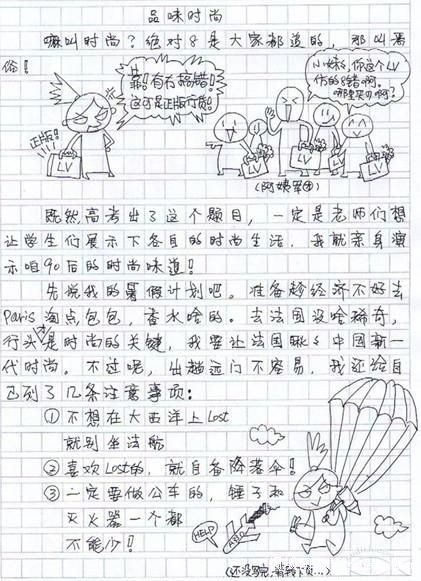 品味时尚
嘛叫时尚？绝对8是大家都道的，那叫
俗！
靠！有冇搞错！
这可是正版行货！
正版！
LV
小妹，你这个LV
仿的8错啊。
哪里买D啊？
LV
LV
LV
(阿姨军团)
既然高考出了这个题目，一定是老师们想
让学生们展示下各自的时尚生活，我就亲身演
示咱90后的时尚味道！
先说我的暑假计划吧。准备趁经济不好去
Paris淘点包包，香水啥的。去法国没啥稀奇，
行头是时尚的关键，我要让法国瞅瞅中国新一
代时尚。不过呢，出趟远门不容易，我还给自
己列了几条注意事项：
①不想在大西洋上Lost
就别坐法航
②喜欢Lost的，就自备降落伞！
③一定要做公车的，锤子和
灭火器一个都
不能少！
HELP
(还没写完，请转下页…)